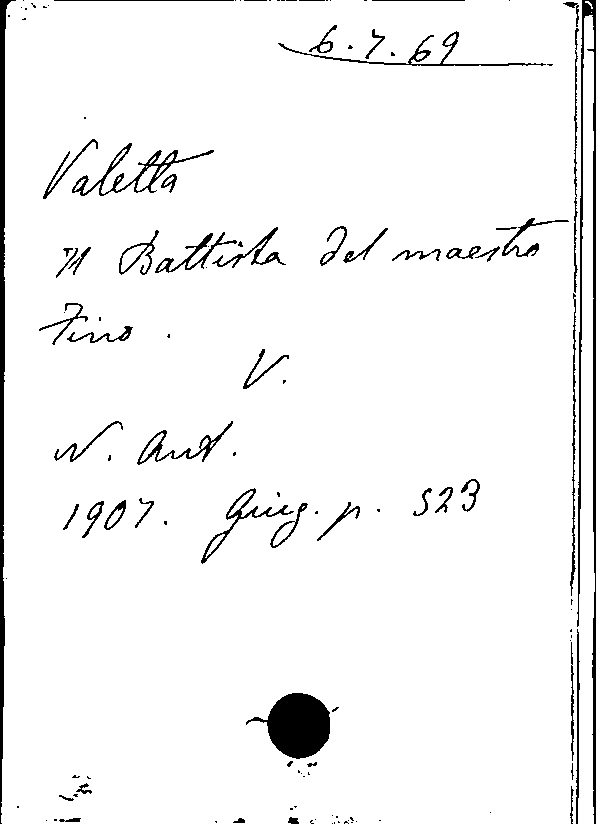 6.7.69
Valetta
Il Battista del maestro
Fino.
V.
N. Ant.
1907. Giug. p. 523